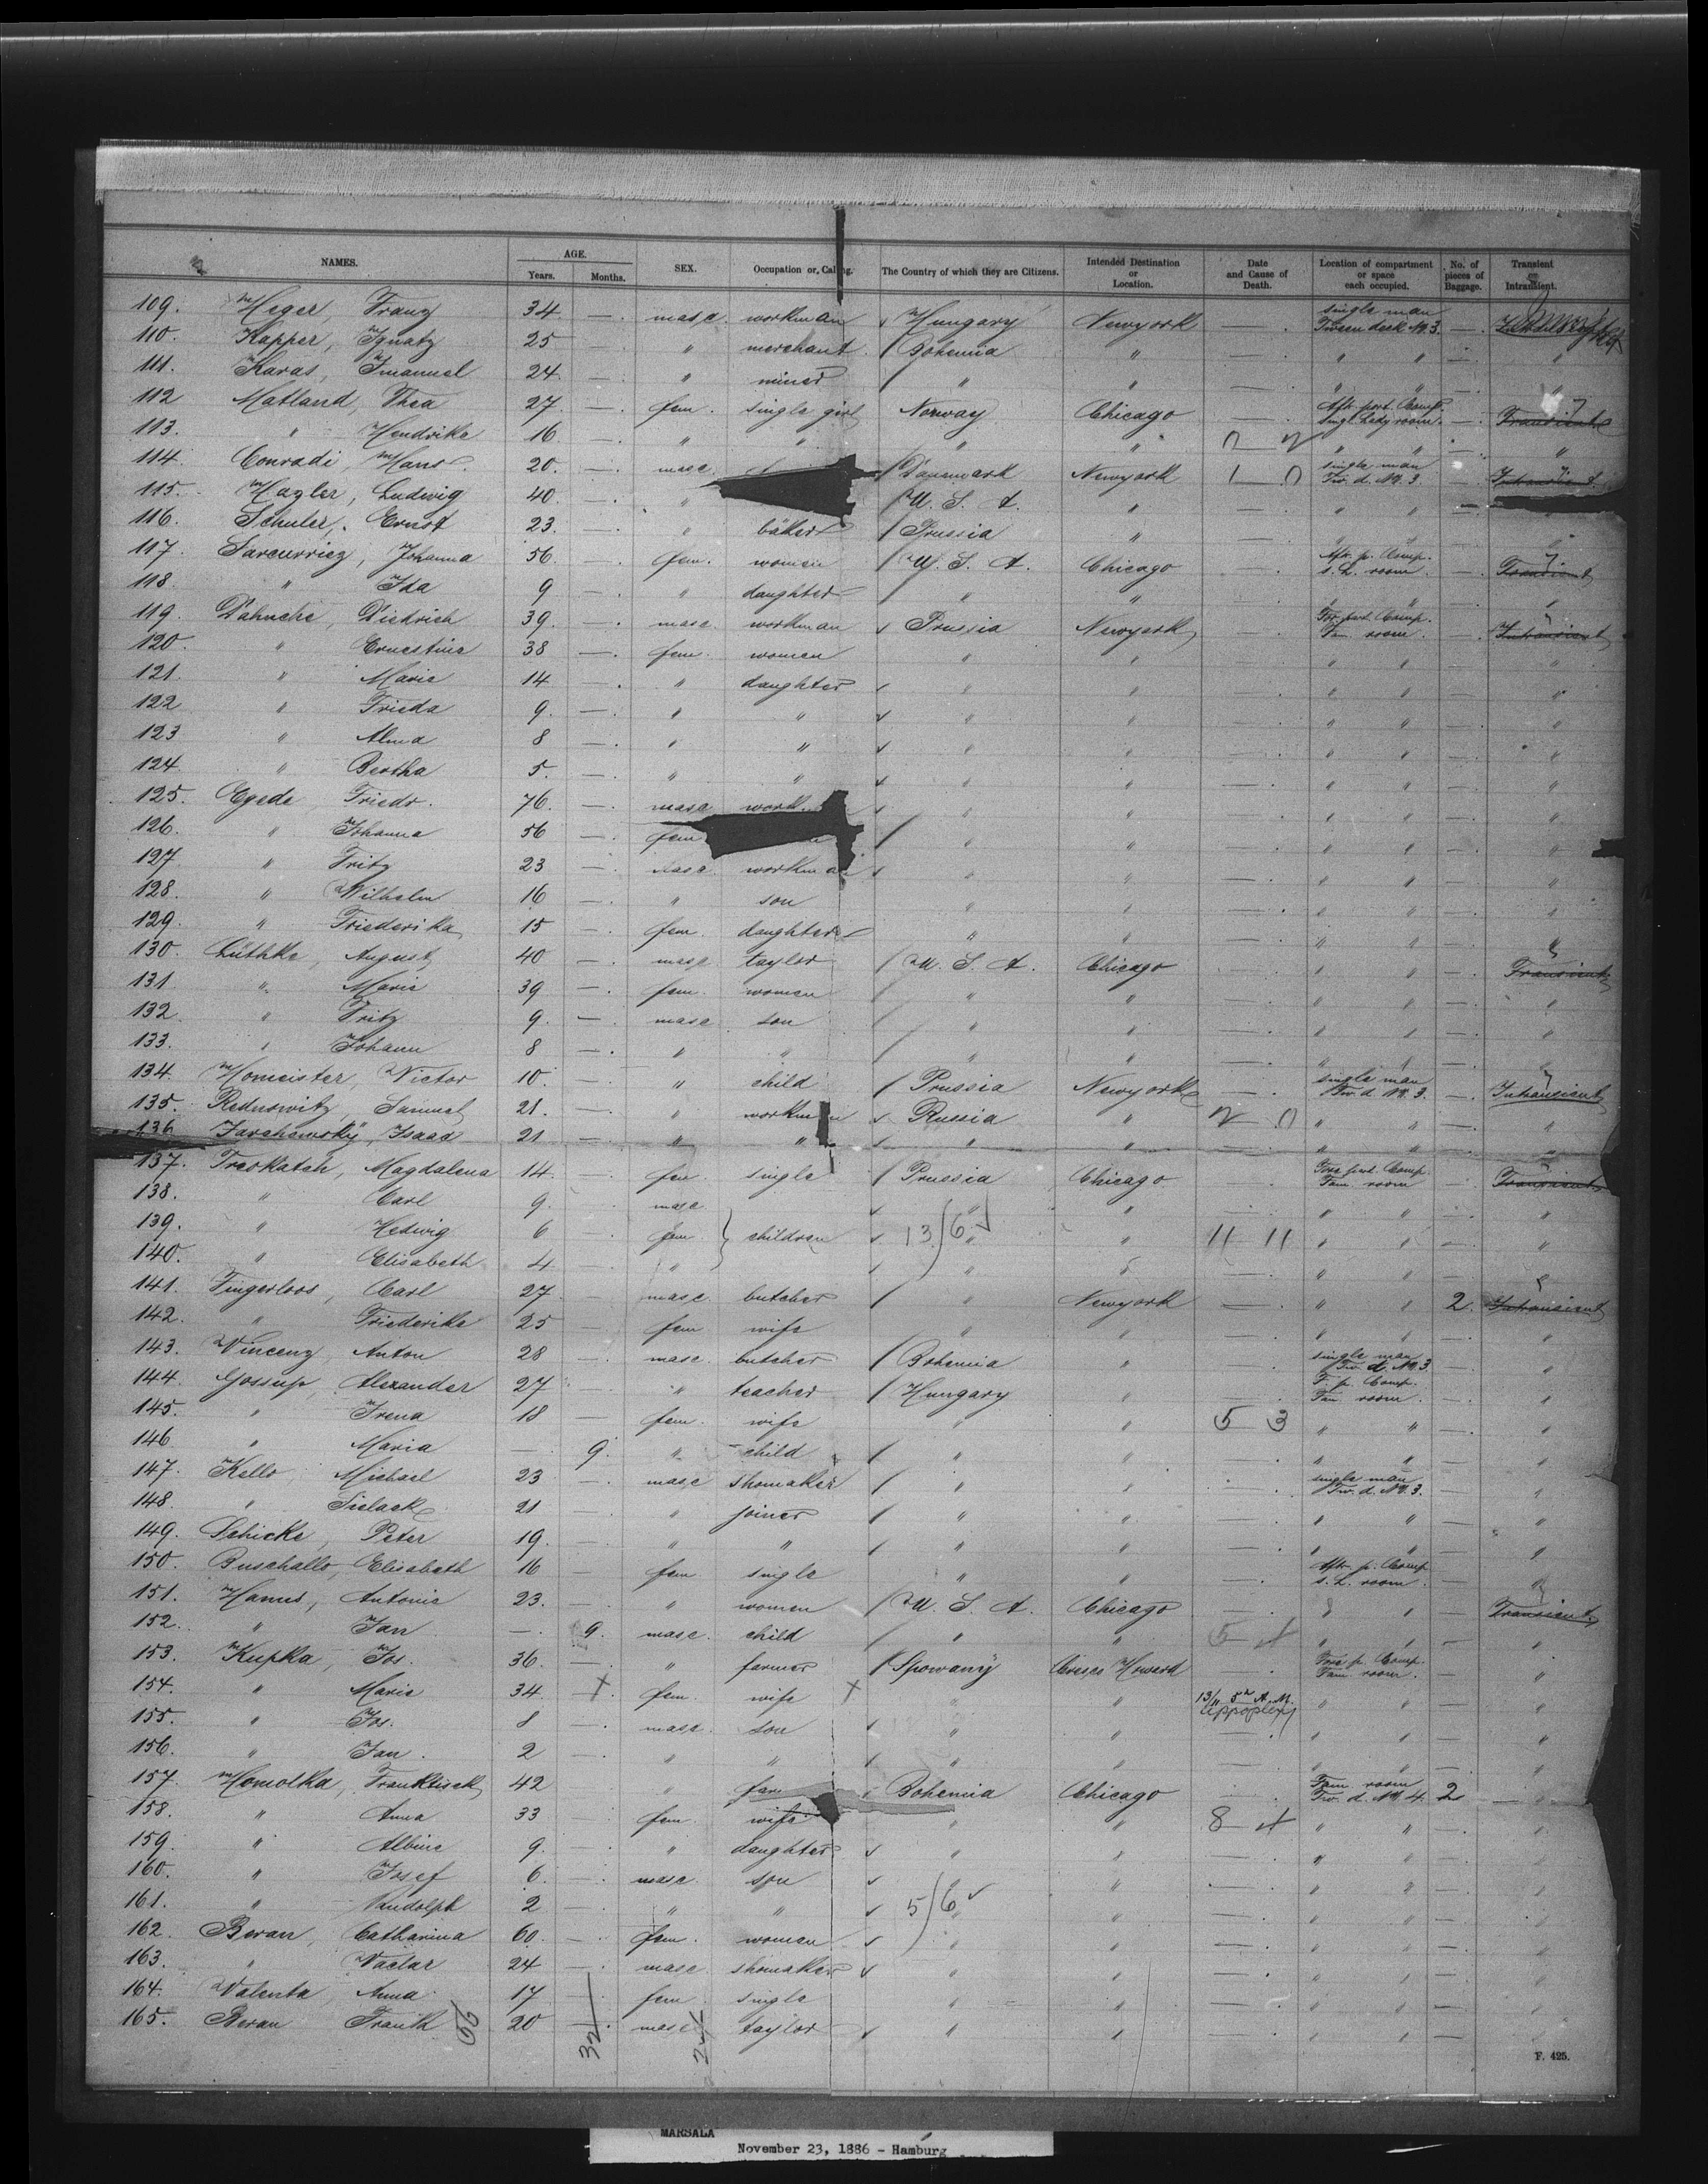 NAMES. AGE. Years. Months. SEX. Occupation or Calling. The Country of which they are Citizens. Intended Destination or Location. Date and Cause of Death. Location of compartment or space each occupied. No. of pieces of Baggage. Transient or Intransient.
109. Heger, Franz 34 — masc. workman Hungary Newyork — single man Tween deck No. 3. —
110. Kapper, Ignatz 25 — " merchant Bohemia " — " " — "
111. Karas, Imanuel 24. — " miner " " — " " — "
112 Matland, Thea 27. — fem. single girl Norway Chicago — Aft. port. Comp. singl. Lady room. — Transient
113. " Hendrika 16 — " " " " " " — "
114. Conradi, Hans. 20. — masc. Danemark Newyork single man Tw. d. No. 3. — Intransient
115. Hagler, Ludwig 40. — " U. S. A. " — " "
116. Schuler, Ernst 23. — " bäker Prussia " — " " — "
117. , Johanna 56. — fem. women U. S. A. Chicago — Aft. p. Comp. s. L. room. — Transient
118. " Ida 9 — " daughter " " — " " — "
119. Dähncke, Diedrich 39. — masc. workman Prussia Newyork — For. port. Comp. Fam. room. — Intransient
120. " Ernestine 38 — fem. women " " — " " — "
121. " Marie 14 — " daughter " " — " " — "
122 " Frieda 9. — " " " " — " " — "
123 " Alma 8 — " " " " — " " — "
124. " Bertha 5. — " " " " — " " — "
125. Egede Friedr. 76. — masc. work " " — " " — "
126. " Johanna 56 — fem " " — " " — "
127. " Fritz 23 — masc. workman " " — " " — "
128. " Wilhelm 16 — " son " " — " " — "
129. " Friederika 15 — fem. daughter " " — " " — "
130. Lüthke, August 40 — masc. taylor U. S. A. Chicago — " " — Transient
131. " Marie 39 — fem. women " " — " " — "
132. " Fritz 9. — masc. son " " — " " — "
133. " Johann 8 — " " " " — " " — "
134. Homeister, Victor 10. — " child Prussia Newyork — single man Tw. d. No. 3. — Intransient
135. Rednowitz, Samuel 21. — " workman Russia " " " — "
136. Isaac 21 — " " " " — " " — "
137. Treskatsh, Magdalena 14. — fem. single Prussia Chicago — Fore port. Comp. Fam. room — Transient
138. " Carl 9. masc. " " — " " — "
139. " Hedwig 6 fem children 13/6 " " 11 11 " " — "
140. " Elisabeth 4 — " " " — " " — "
141. Fingerloos, Carl 27. — masc. butcher " Newyork — " " 2. Intransient
142. " Friederike 25 — fem wife " " — " " — "
143. Vincenz Anton 28 — masc. butcher Bohemia " single man Tw. d. No. 3. — "
144. Gossup, Alexander 27 — " teacher Hungary " — F. p. Comp. Fam. room. — "
145. " Irena 18 — fem. wife " " 5 3 " " — "
146 " Maria — 9. " child " " — " " — "
147. Kello Michael 23 — masc shomaker " " single man Tw. d. No. 3. — "
148. " 21 " joiner " " — " " — "
149. Schicke, Peter 19. — " " " " — " " — "
150. Buschallo, Elisabeth 16 — fem. single " " — Aft. p. Comp s. L. room. — "
151. Hanus, Antonie 23. — " women U. S. A. Chicago — " " — Transient
152. " Jan — 9. masc. child " " " " — "
153. Kupka, Jos. 36. — " farmer Cresco Howard — Fore p. Comp. Fam. room. — "
154. " Marie 34. + fem. wife + " " 13/11 5 A. M. appoplexy " " — "
155. " Jos. 8 — masc. son " " — " " — "
156. " Jan. 2 — " " " " — " " — "
157. Homolka, 42 " far Bohemia Chicago — Fam. room Tw. d. No 4. 2 "
158. " Anna 33 fem. wife " " " " — "
159. " Albine 9. — " daughter " " — " " — "
160. " Josef 6. — masc. son " " — " " — "
161. " Rudolph 2 — " " 5/6 " " — " " — "
162. Beran, Catharina 60. — fem. women " " — " " — "
163. " Vaclav 24 — masc. shomaker " " — " " — "
164. Valenta, Anna 17 — fem. single " " — " " — "
165. Beran Frank 20 — masc. taylor " " — " " — "
32
24
F. 425.
MARSALA
November 23, 1886 - Hamburg